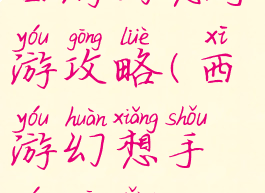 yóu gōng lüè xī
游攻略(西
yóu huàn xiǎng shǒu
游幻想手